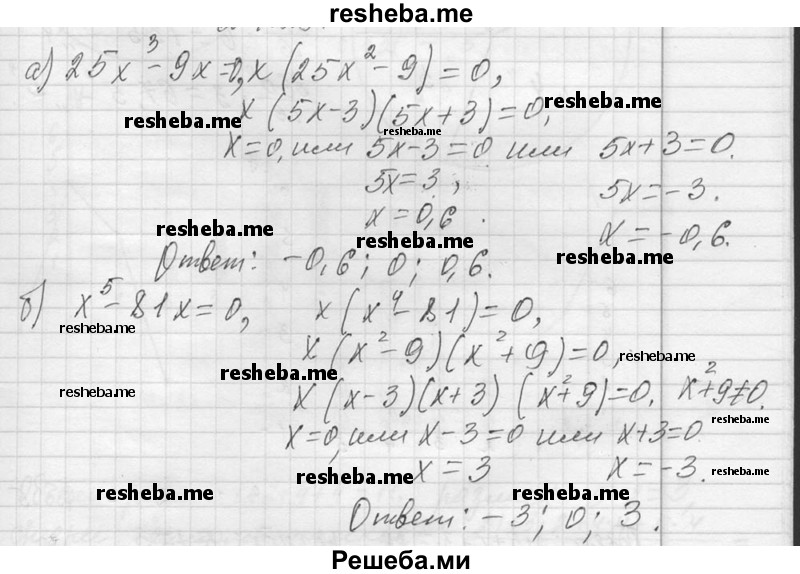 resheba.me
а) 25x³-9x=0, x(25x²-9)=0,
x(5x-3)(5x+3)=0,
resheba.me
resheba.me
resheba.me
x=0, или 5x-3=0 или 5x+3=0.
5x=3; 5x=-3.
x=0,6. x=-0,6.
resheba.me
resheba.me
resheba.me
Ответ: -0,6; 0; 0,6.
б) x⁵-81x=0, x(x⁴-81)=0,
resheba.me
x(x²-9)(x²+9)=0,
resheba.me
resheba.me
resheba.me
x(x-3)(x+3)(x²+9)=0. x²+9≠0.
resheba.me
x=0, или x-3=0 или x+3=0.
x=3 x=-3.
resheba.me
resheba.me
resheba.me
resheba.me
Ответ: -3; 0; 3.
Решеба.ми